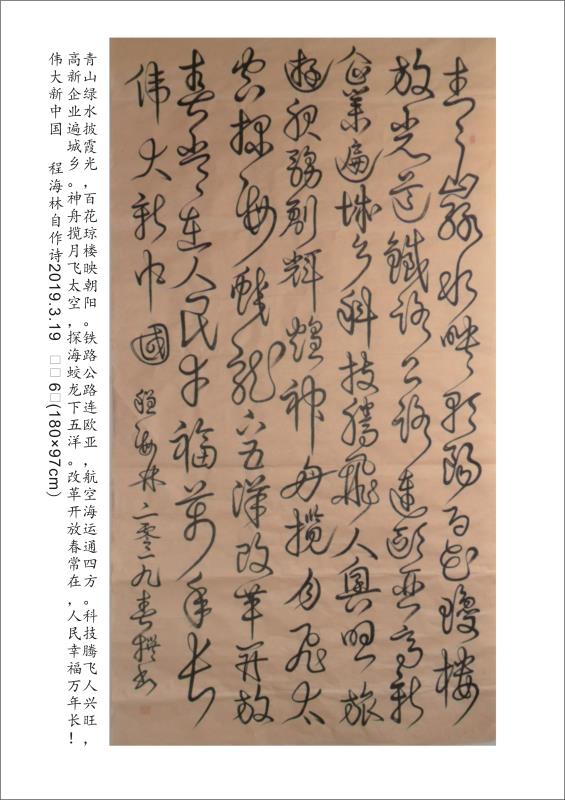 青山绿水映朝阳百花瓊楼
放光芒鐵路公路連歐亞高新
企業遍城乡科技騰飛人興旺旅
游服務創輝煌神舟攬月飛太
空探海蛟龍下五洋改革开放
春常在人民幸福萬年长
伟大新中國 程海林二零一九春撰书
青山绿水披霞光，百花琼楼映朝阳。铁路公路连欧亚，航空海运通四方。科技腾飞人兴旺，
高新企业遍城乡。神舟揽月飞太空，探海蛟龙下五洋。改革开放春常在，人民幸福万年长！
伟大新中国 程海林自作诗2019.3.19 □□6□(180×97cm)